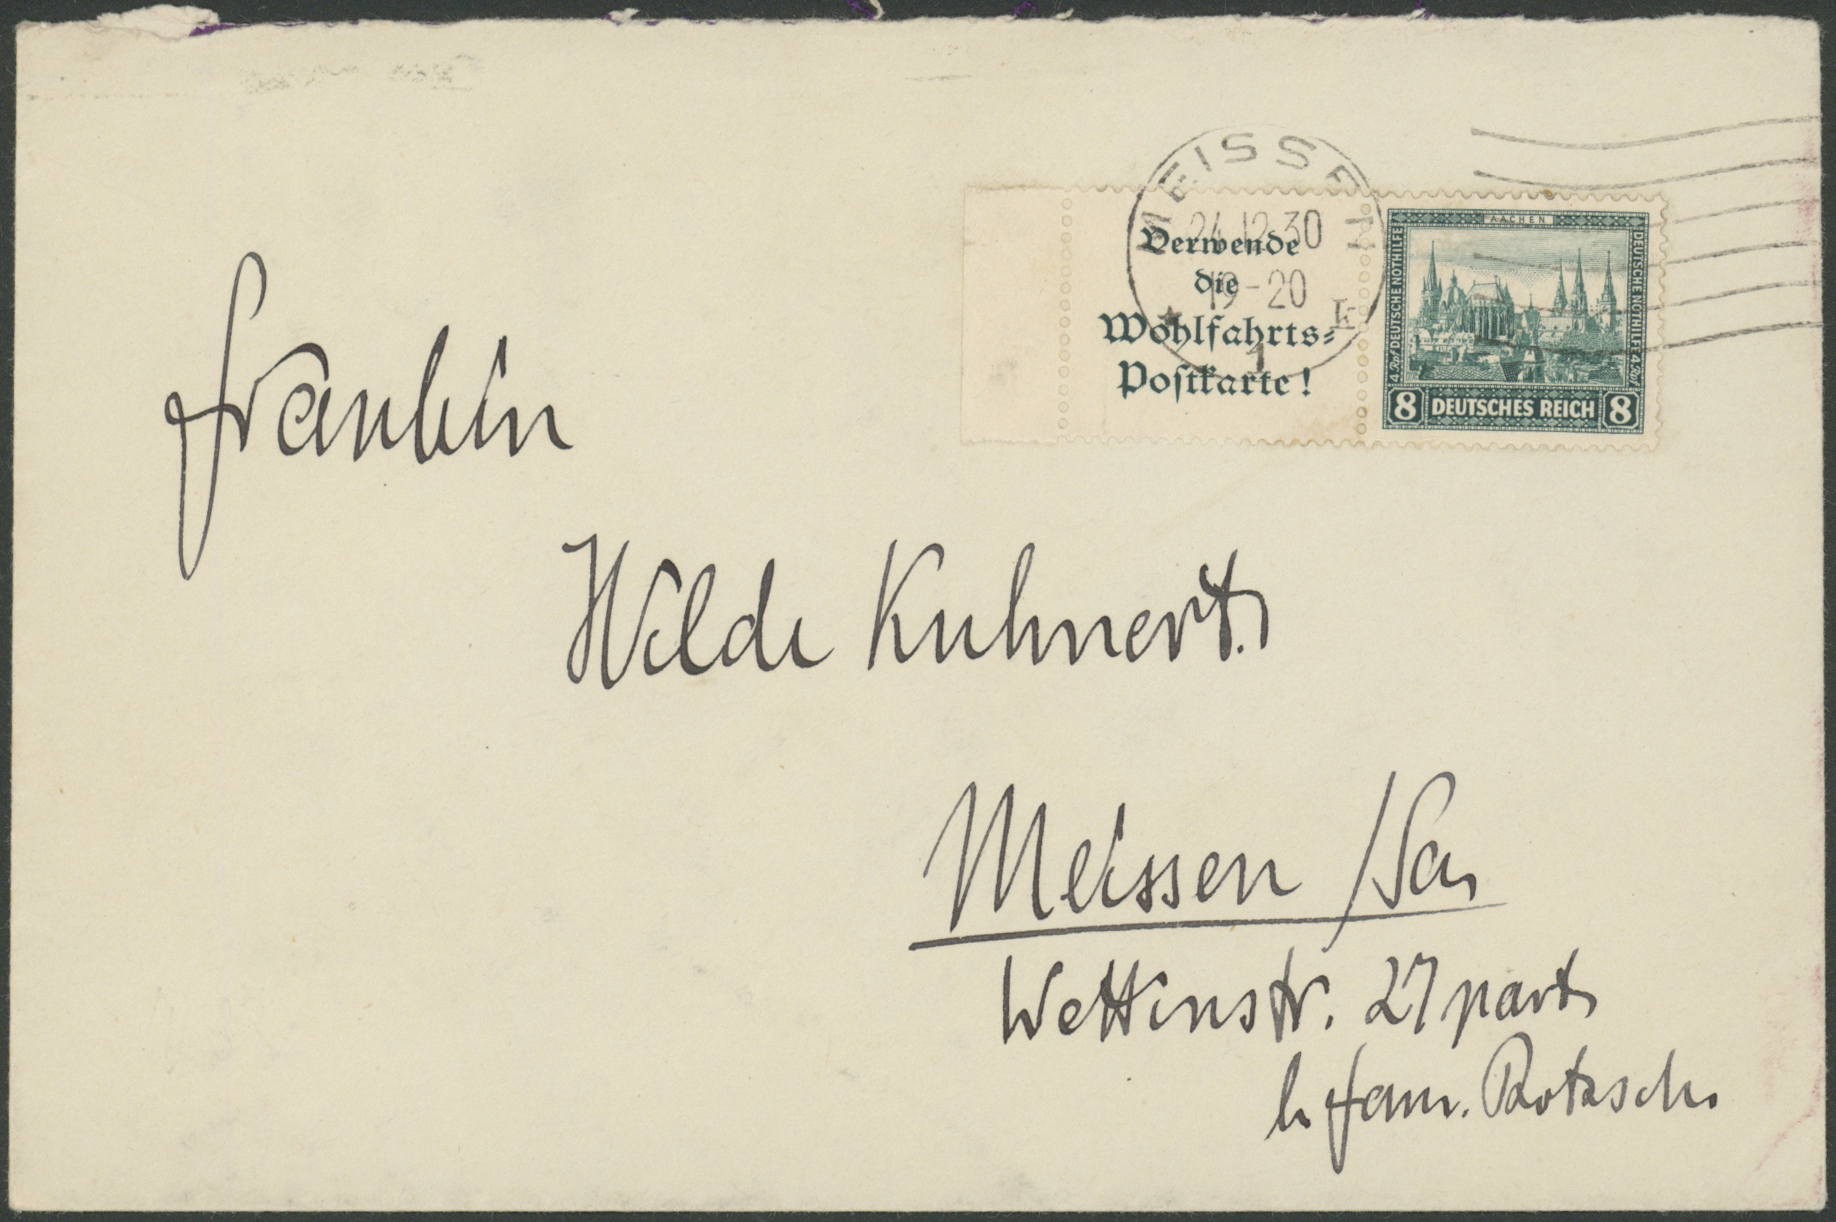 MEISSEN
24.12.30
19-20
* k
1
Verwende
die
Wohlfahrts=
Postkarte!
AACHEN
4 Rpf DEUTSCHE NOTHILFE
DEUTSCHE NOTHILFE 4 Rpf
8 DEUTSCHES REICH 8
Fräulein
Hilde Kuhnert.
Meissen /Sa.
Wettinstr. 27 part.
b. Fam. Rotzsch.